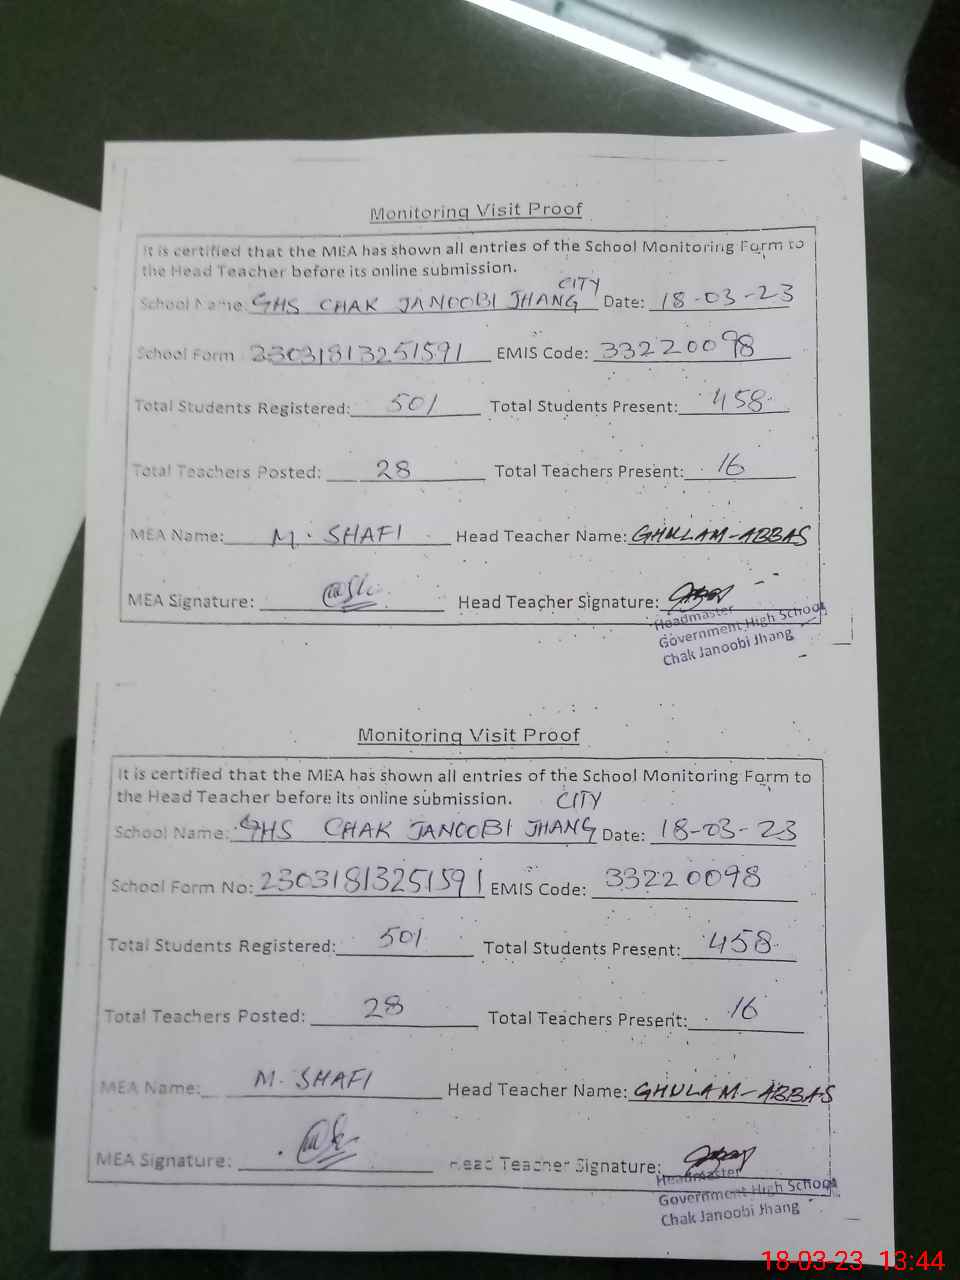 Monitoring Visit Proof
It is certified that the MEA has shown all entries of the School Monitoring Form to
the Head Teacher before its online submission.
CITY
School Name: GHS CHAK JANOOBI JHANG Date: 18-03-23
School Form 23031813251591 EMIS Code: 33220098
Total Students Registered: 501 Total Students Present: 458
Total Teachers Posted: 28 Total Teachers Present: 16
MEA Name: M. SHAFI Head Teacher Name: GHULLAM-ABBAS
MEA Signature: Head Teacher Signature:
Headmaster
Government High School
Chak Janoobi Jhang
Monitoring Visit Proof
It is certified that the MEA has shown all entries of the School Monitoring Form to
the Head Teacher before its online submission.
CITY
School Name: GHS CHAK JANOOBI JHANG Date: 18-03-23
School Form No: 23031813251591 EMIS Code: 33220098
Total Students Registered: 501 Total Students Present: 458
Total Teachers Posted: 28 Total Teachers Present: 16
MEA Name: M. SHAFI Head Teacher Name: GHULAM-ABBAS
MEA Signature: Head Teacher Signature:
Headmaster
Government High School
Chak Janoobi Jhang
18-03-23 13:44